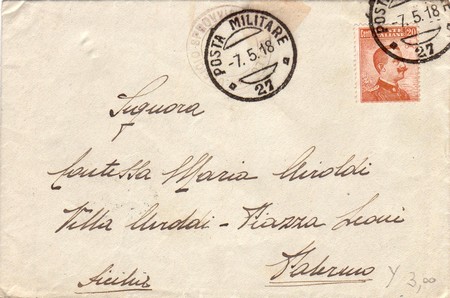 POSTA MILITARE
-7.5.18
27
POSTA MILITARE
-7.5.18
27
POSTE ITALIANE
Cent. 20
Signora
Contessa Maria Airoldi
Villa Airoldi - Piazza Leoni
Palermo
Sicilia
3,00